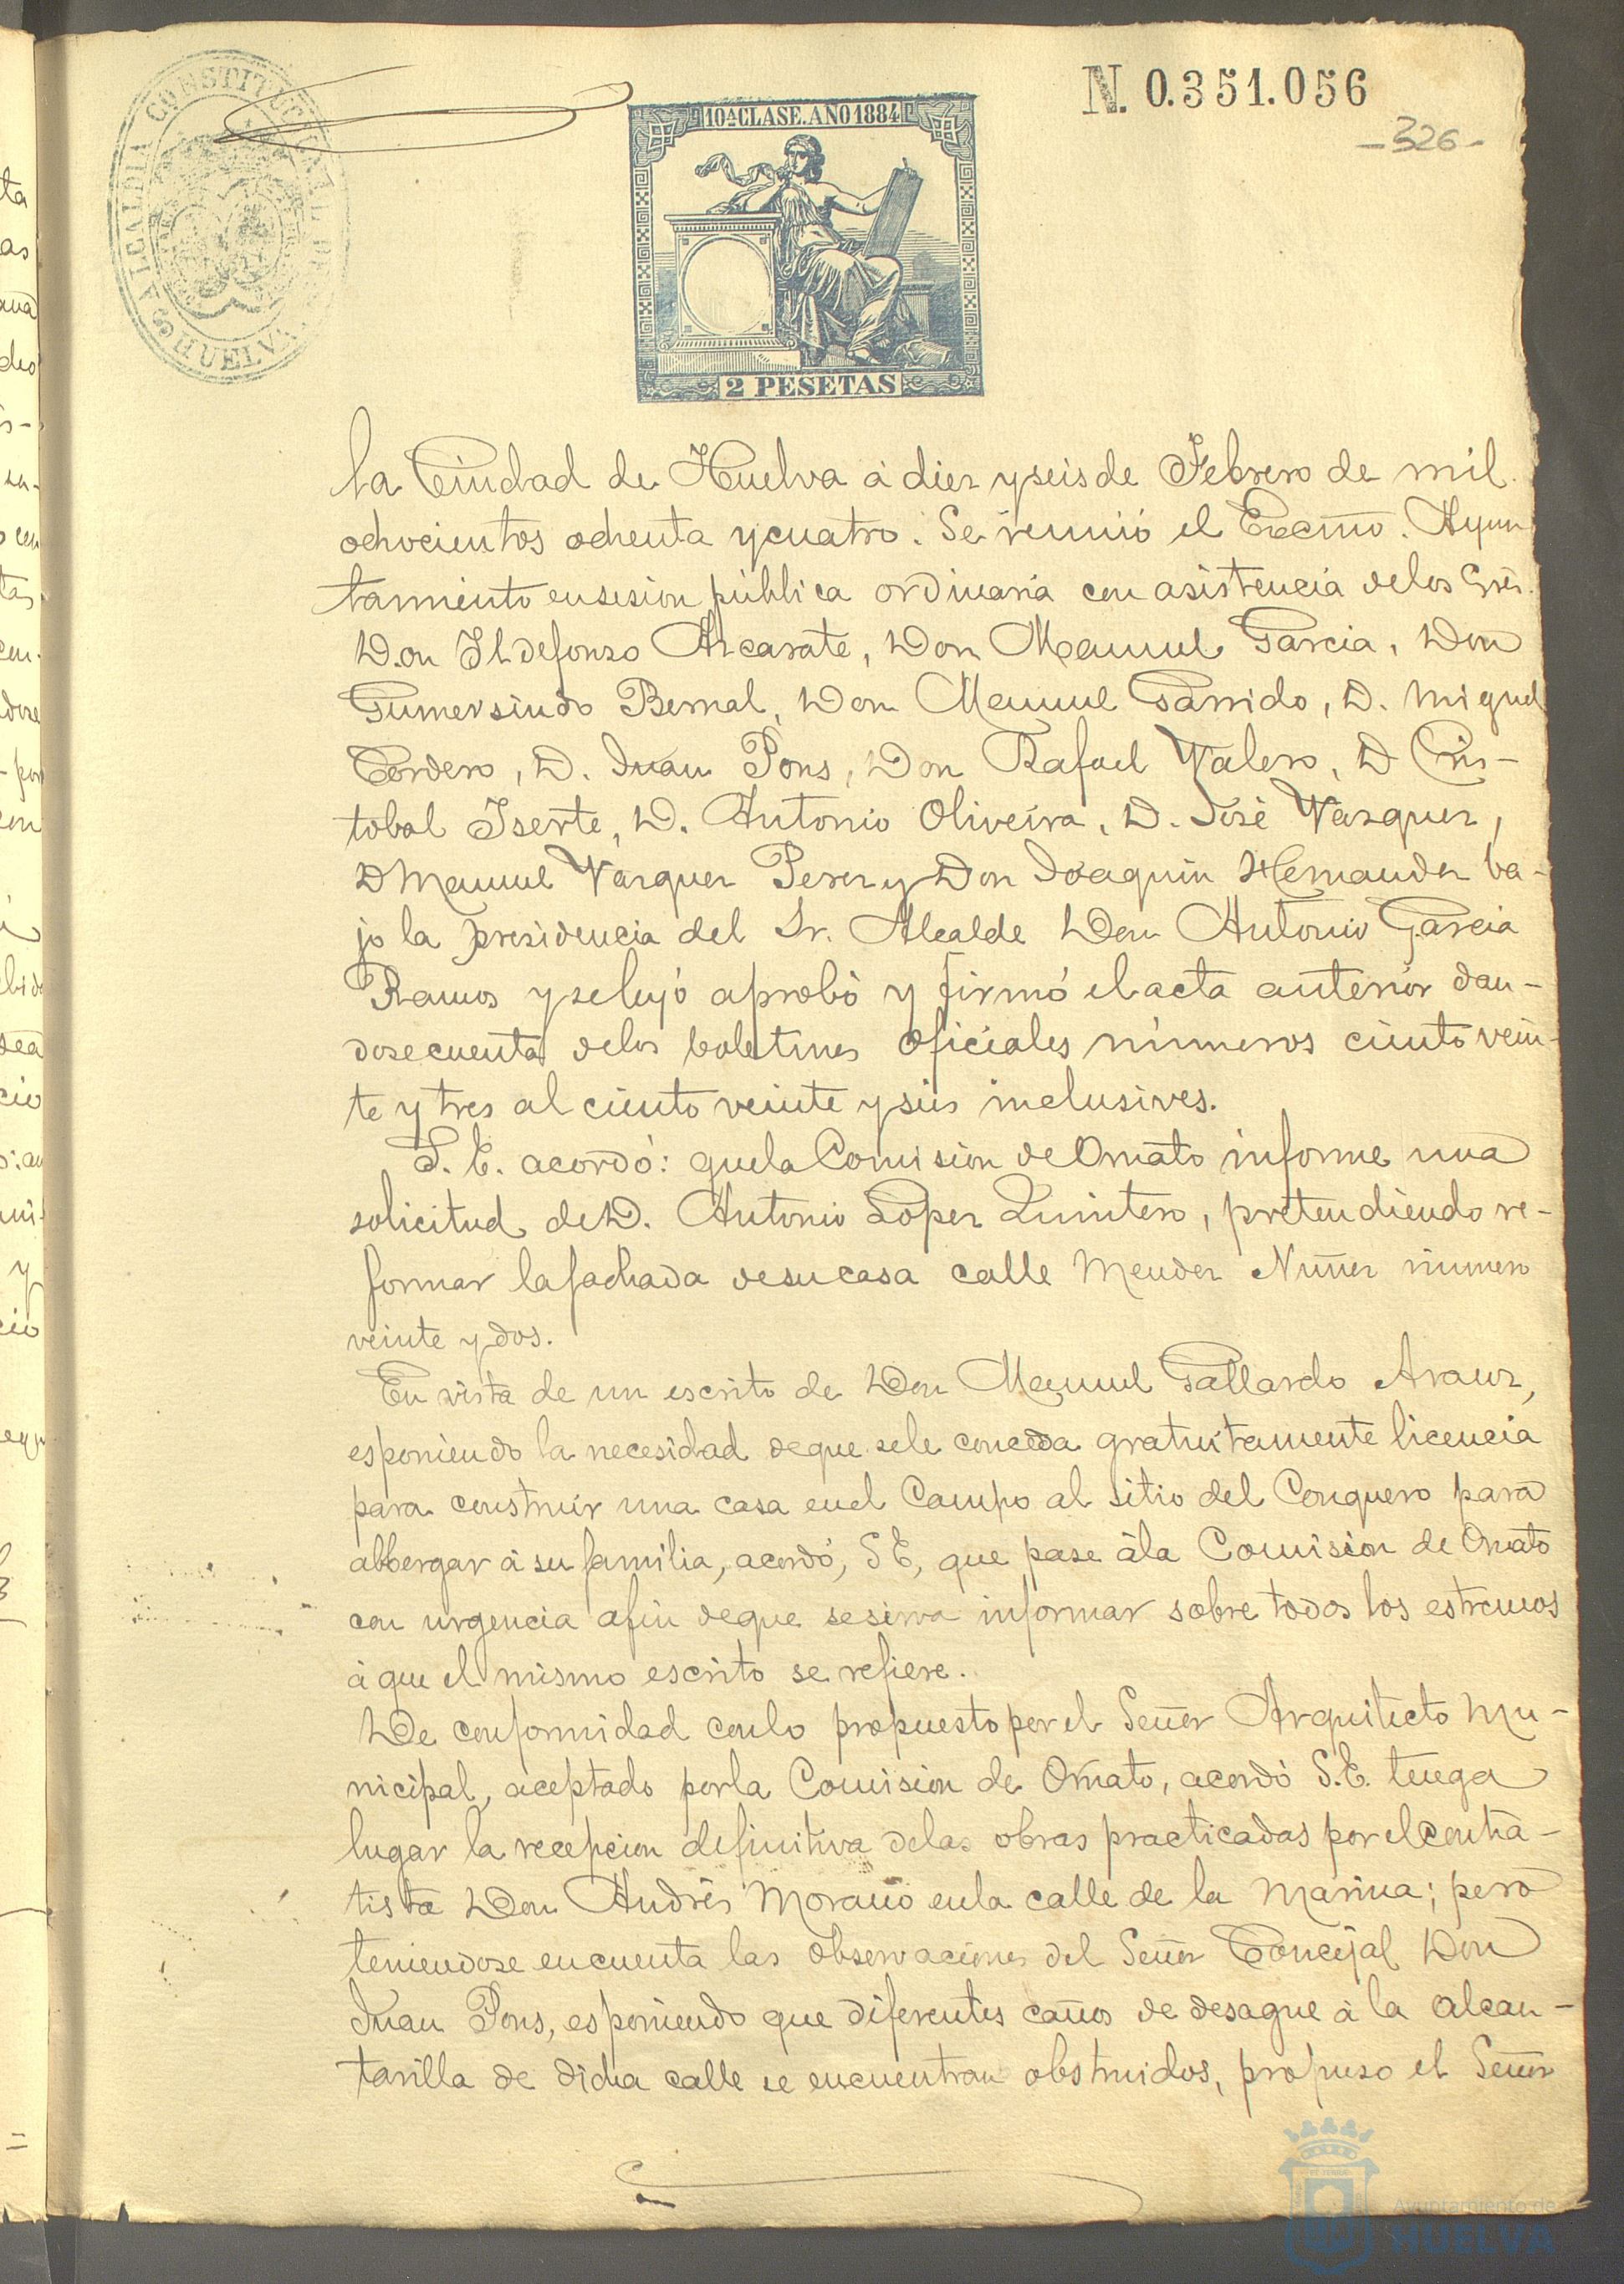 ALCALDIA CONSTITUCIONAL DE
HUELVA
10ª CLASE. AÑO 1884
2 PESETAS
N. 0.351.056
-326-
la Ciudad de Huelva á diez y seis de Febrero de mil
ochocientos ochenta y cuatro. Se reunió el Excmo. Ayun
tamiento en sesion pública ordinaria con asistencia de los Sres.
Don Ildefonzo Azcarate, Don Manuel Garcia, Don
Gumersindo Bernal, Don Manuel Garrido, D. Miguel
Cordero, D. Juan Pons, Don Rafael Valero, D Cris-
tobal Iserte, D. Antonio Oliveira, D. José Vázquez,
D Manuel Vazquez Perez y Don Joaquin Hernandez ba-
jo la presidencia del Sr. Alcalde Don Antonio Garcia
Ramos y se leyó aprobó y firmó el acta anterior dan-
dose cuenta de los boletines oficiales números ciento vein-
te y tres al ciento veinte y seis inclusives.
S. E. acordó: que la Comision de Ornato informe una
solicitud de D. Antonio Lopez Quintero, pretendiendo re-
formar la fachada de su casa calle Mendez Nuñez número
veinte y dos.
En vista de un escrito de Don Manuel Gallardo Arauz,
esponiendo la necesidad de que se le conceda gratuitamente licencia
para construir una casa en el Campo al sitio del Conquero para
albergar á su familia, acordó, S E, que pase á la Comision de Ornato
con urgencia a fin de que se sirva informar sobre todos los estremos
á que el mismo escrito se refiere.
De conformidad con lo propuesto por el Señor Arquitecto Mu-
nicipal, aceptado por la Comision de Ornato, acordó S.E. tenga
lugar la recepcion definitiva de las obras practicadas por el contra-
tista Don Andrés Moraño en la calle de la Marina; pero
teniendose en cuenta las observaciones del Señor Concejal Don
Juan Pons, esponiendo que diferentes caños de desague á la alcan-
tarilla de dicha calle se encuentran obstruidos, propuso el Señor
Ayuntamiento de
HUELVA